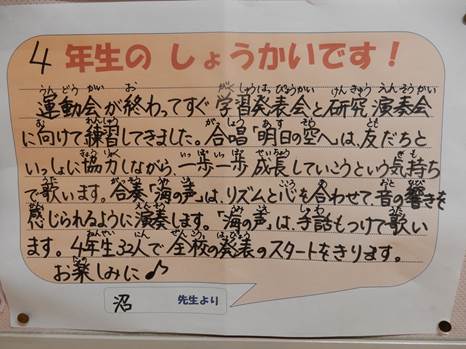 4年生の しょうかいです！
運動会が終わってすぐ学習発表会と研究演奏会
に向けて練習してきました。合唱「明日の空へ」は、友だちと
いっしょに協力しながら、一歩一歩成長していこうという気持ち
で歌います。合奏「海の声」は、リズムと心を合わせて、音の響きを
感じられるように演奏します。「海の声」は、手話もつけて歌い
ます。4年生32人で全校の発表のスタートをきります。
お楽しみに♪
沼 先生より